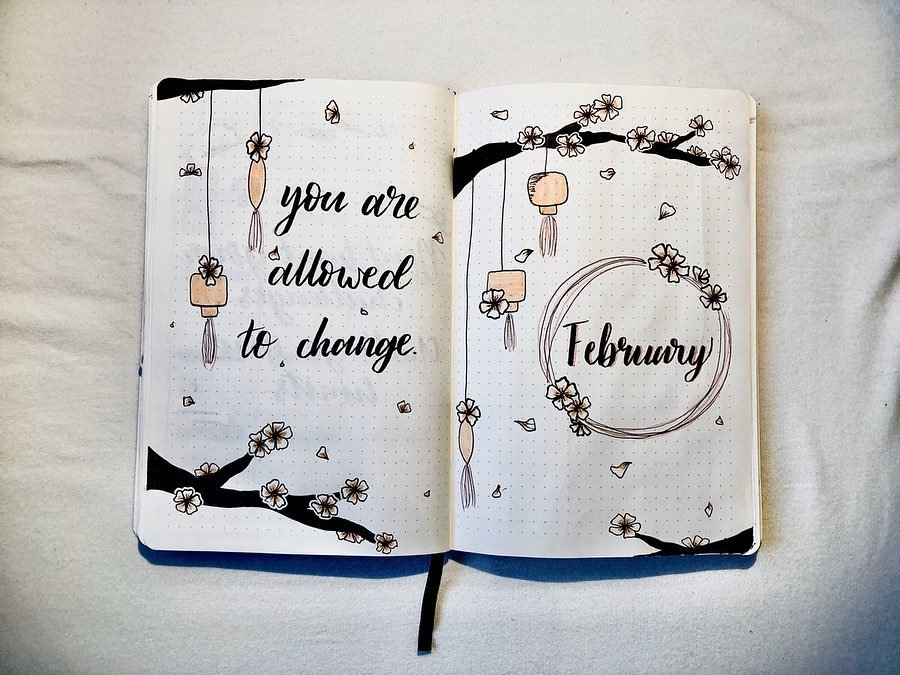 you are
allowed
to change.
February